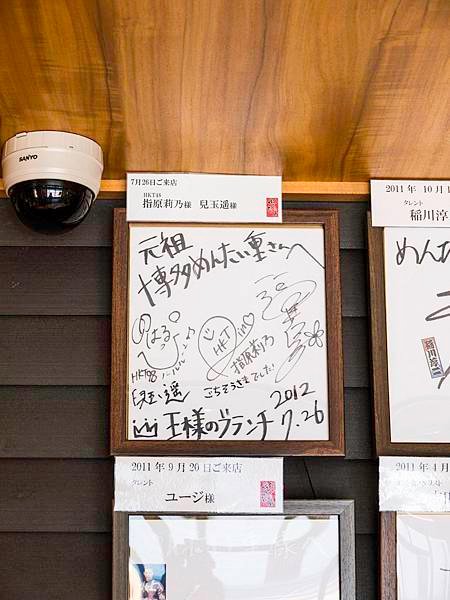 SANYO
7月26日ご来店
HKT48
指原莉乃様 兒玉遥様
元祖
博多めんたい重さんへ
はるっぴ
HKT
指原莉乃
HKT48
兒玉遥
ごちそうさまでした!
in 王様のブランチ
2012
7.26
2011年 9月 20日ご来店
タレント
ユージ様
2011年 10月 1
タレント
稲川淳
めんた
稲川淳二
2011年 4月